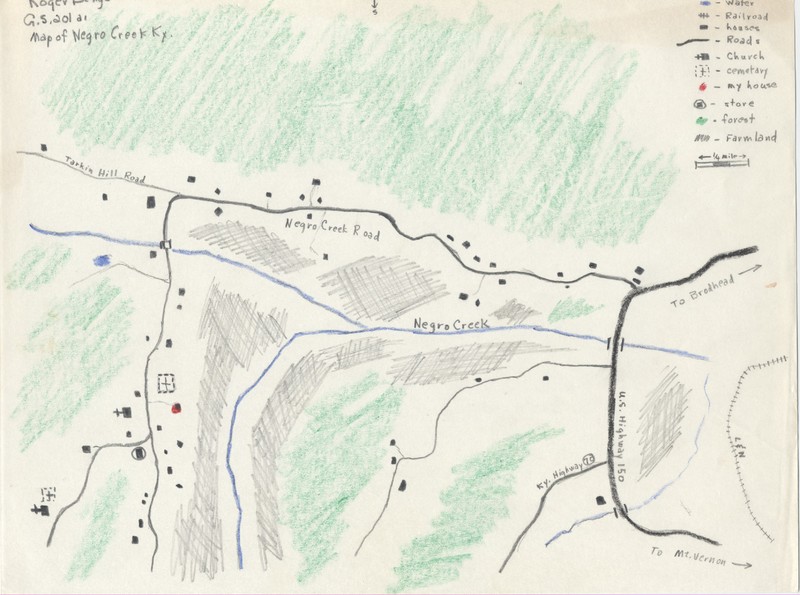 Roger
G.S. 201 a1
Map of Negro Creek Ky.
S
- water
- Railroad
- houses
- Roads
- Church
- cemetary
- my house
- store
- forest
- Farmland
¼ mile
Tarkin Hill Road
Negro Creek Road
To Brodhead
Negro Creek
U.S. Highway 150
L&N
Ky. Highway 70
To Mt. Vernon